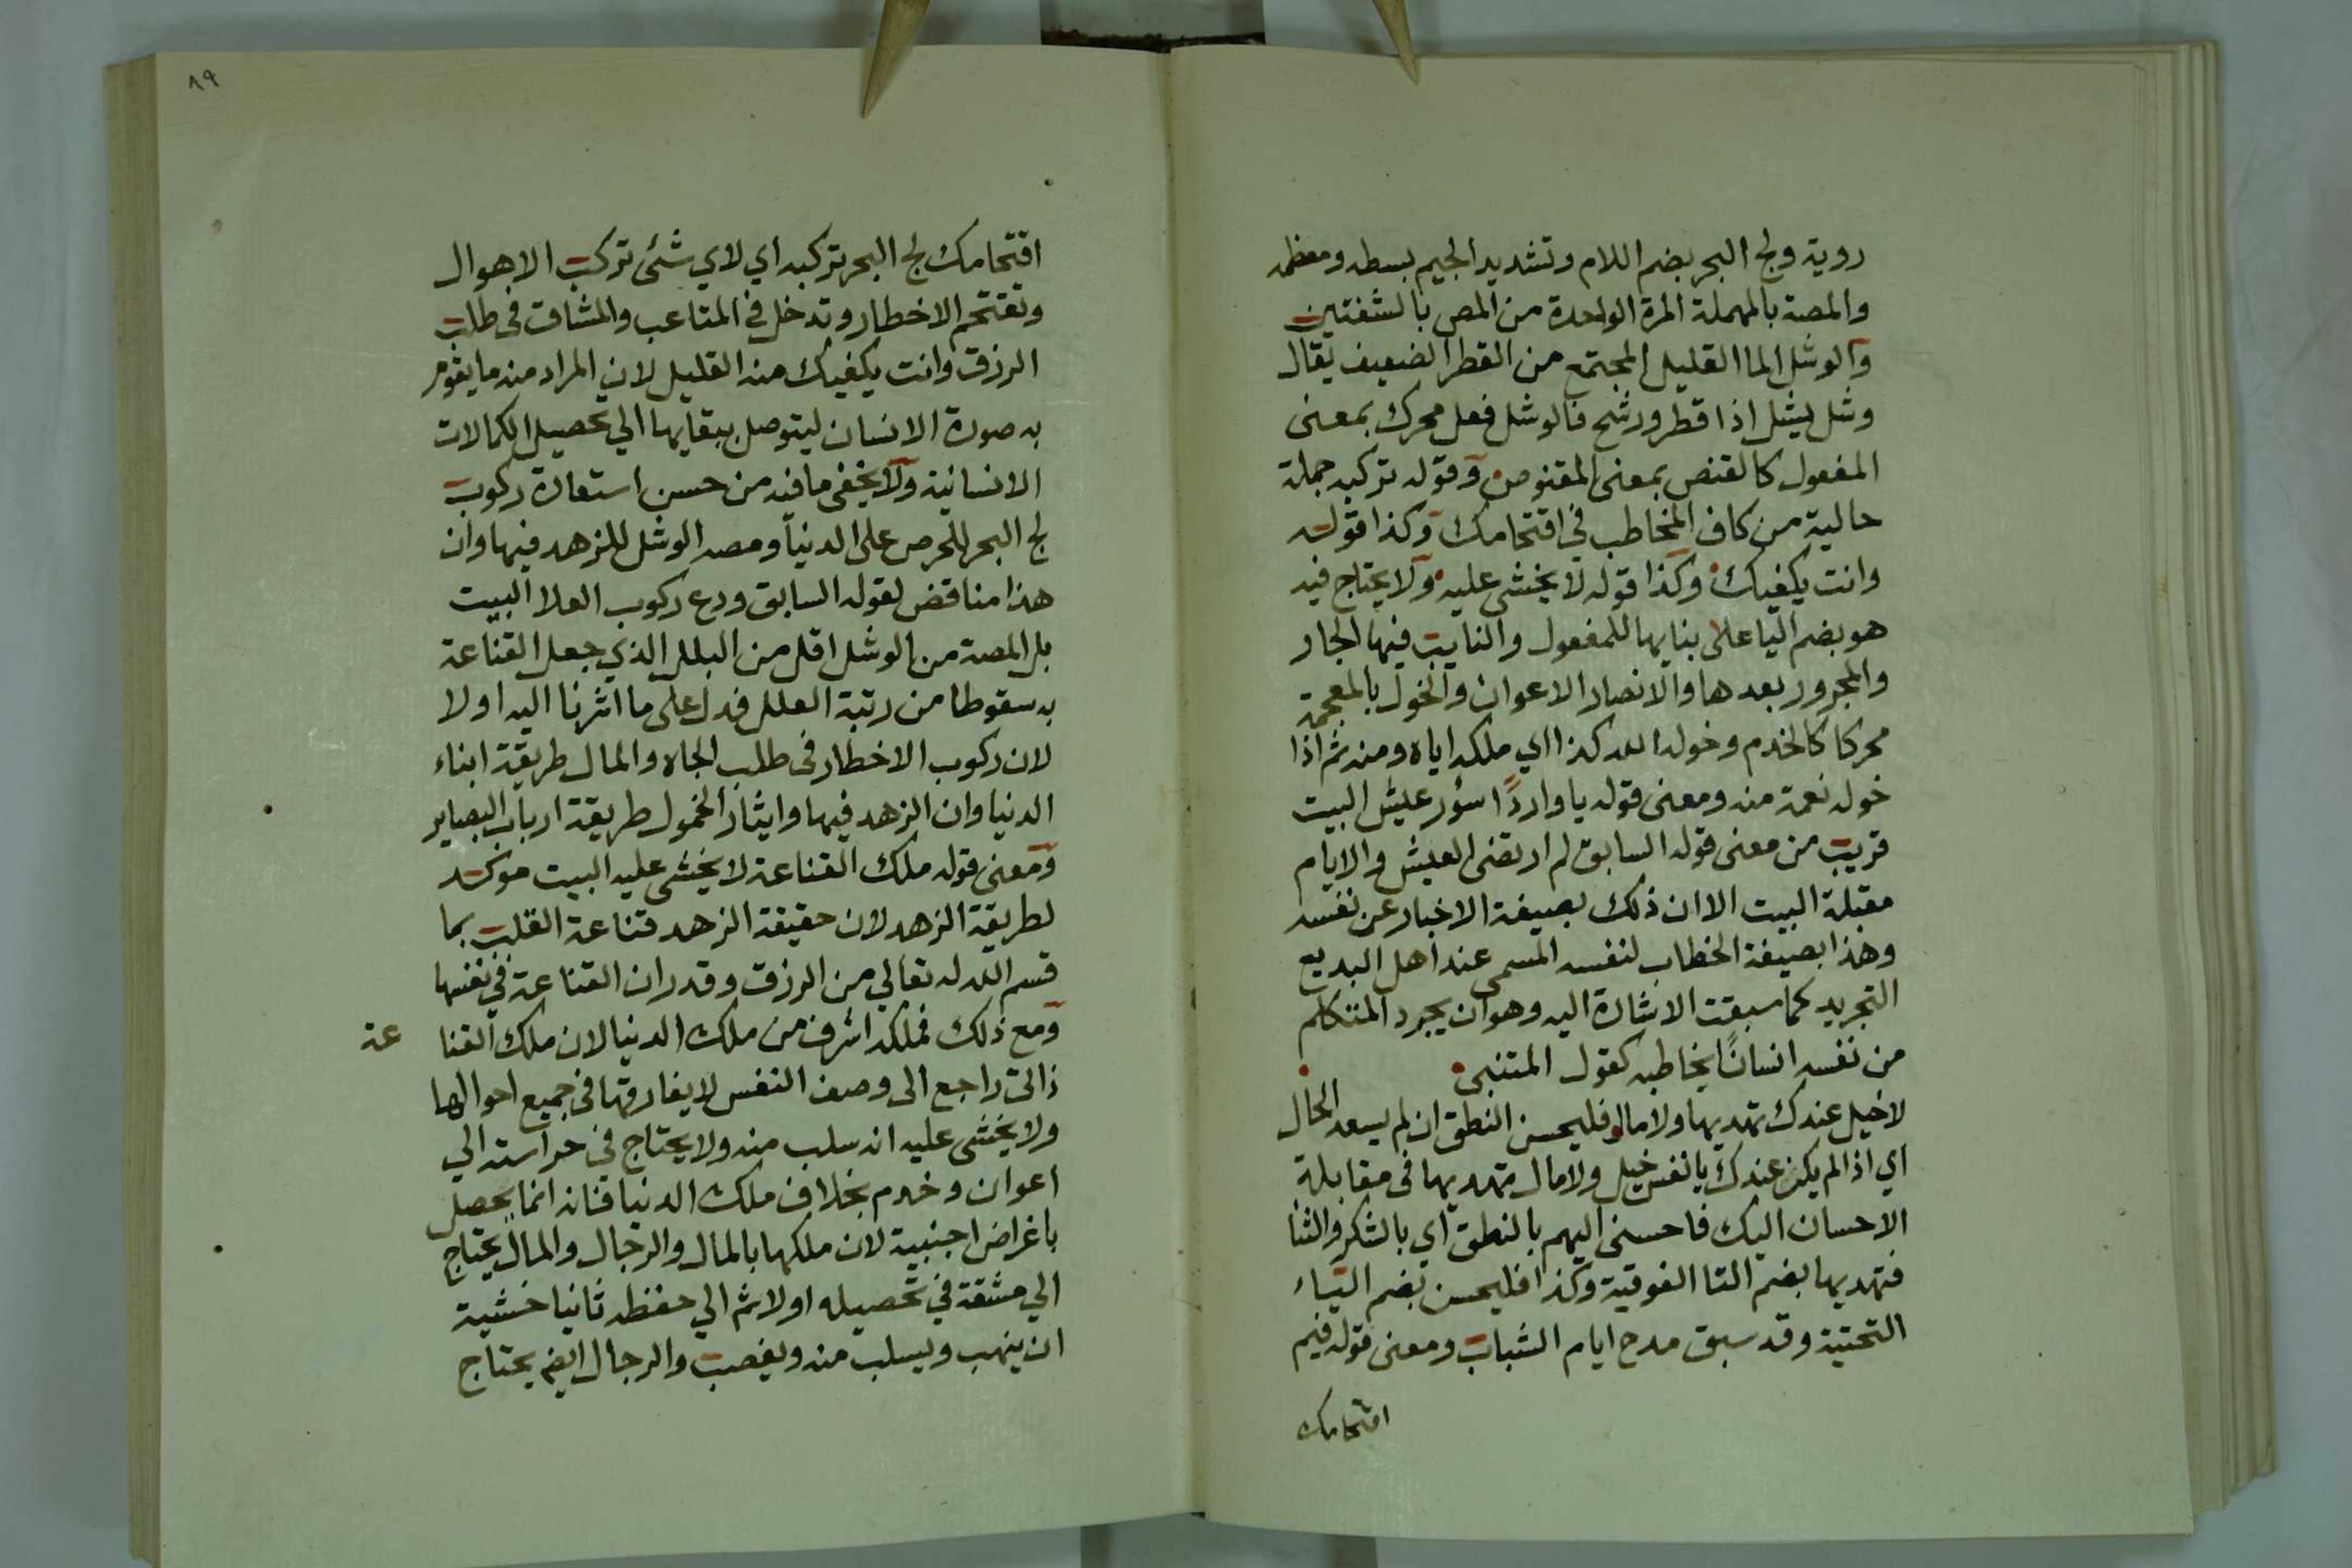 روية ولج البحر بضم اللام وتشديد الجيم بسطه ومعظمه
والمصة بالمهملة المرة الواحدة من المص بالشفتين
والوشل الما القليل المجتمع من القطر الضعيف يقال
وشل يشل اذا قطر ورشح فالوشل فعل محرك بمعنى
المفعول كالقنص بمعنى المقنوص وقوله تركبه جملة
حالية من كاف المخاطب في اقتحامك وكذا قوله
وانت يكفيك وكذا قوله لا يخشى عليه ولا يحتاج فيه
هو بضم اليا علي بنايها للمفعول والنايب فيها الجار
والمجرور بعدها والانصار الاعوان والخول بالمعجمة
محركا كالخدم وخوله الله كذا اي ملكه اياه ومنه ثم اذا
خوله نعمة منه ومعنى قوله يا واردًا سؤر عيش البيت
قريب من معنى قوله السابق لم ارتضى العيش والايام
مقبلة البيت الا ان ذلك بصيغة الاخبار عن نفسه
وهذا بصيغة الخطاب لنفسه المسمى عند اهل البديع
التجريد كما سبقت الاشارة اليه وهو ان يجرد المتكلم
من نفسه انسانًا يخاطبه كقول المتنبى
لا خيل عندك تهديها ولا مال فليحسن النطق ان لم يسعد الحال
اي اذا لم يكن عندك يا نفس خيل ولا مال تهديها فى مقابلة
الاحسان اليك فاحسنى اليهم بالنطق اي بالشكر والثنا
فتهديها بضم التا الفوقية وكذا فليحسن بضم الياء
التحتية وقد سبق مدح ايام الشباب ومعنى قوله فيم
اقتحامك
٨٩
اقتحامك لج البحر تركبه اي لاي شئ تركب الاهوال
وتقتحم الاخطار وتدخل في المتاعب والمشاق فى طلب
الرزق وانت يكفيك منه القليل لان المراد منه ما يقوم
به صورة الانسان ليتوصل ببقايها الي تحصيل الكمالات
الانسانية ولا يخفى ما فيه من حسن استعارة ركوب
لج البحر للحرص على الدنيا ومصه الوشل للزهد فيها وان
هذا مناقض لقوله السابق ودع ركوب العلا البيت
بل المصة من الوشل اقل من البلل الذي جعل القناعة
به سقوطا من رتبة العلل فدل على ما اشرنا اليه اولا
لان ركوب الاخطار فى طلب الجاه والمال طريقة ابناء
الدنيا وان الزهد فيها وايثار الخمول طريقة ارباب البصاير
ومعنى قوله ملك القناعة لا يخشى عليه البيت موكد
لطريقة الزهد لان حقيقة الزهد قناعة القلب بما
قسم الله له تعالي من الرزق وقد ران القناعة في نفسها
ومع ذلك فملكه اشرف من ملك الدنيا لان ملك القنا عة
ذاتى راجع الى وصف النفس لا يفارقها فى جميع احوالها
ولا يخشى عليه انه سلب منه ولا يحتاج في حراسته الي
اعوان وخدم بخلاف ملك الدنيا فانه انما يحصل
باغراض اجنبية لان ملكها بالمال والرجال والمال يحتاج
الي مشقة في تحصيله اولا ثم الي حفظه ثانيا خشية
ان ينهب ويسلب منه ويغصب والرجال ايضم يحتاج